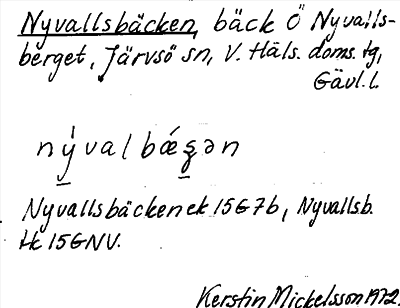 Nyvallsbäcken, bäck Ö Nyvalls-
berget, Järvsö sn, V. Häls. doms. tg,
Gävl. l.
nývalbǽʂən
Nyvallsbäcken ek 15G7b, Nyvallsb.
Hk 15GNV.
Kerstin Mickelsson 1972.